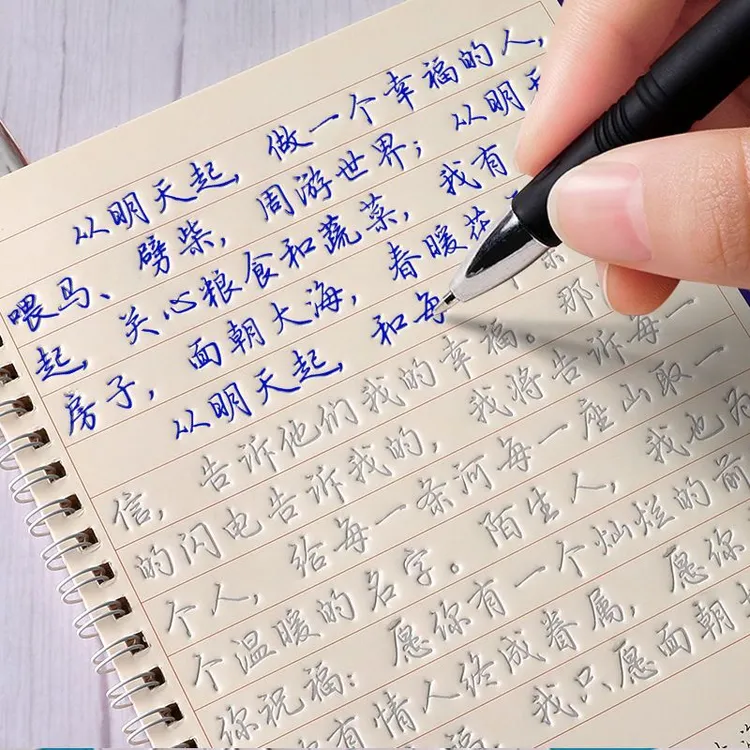 从明天起，做一个幸福的人，
喂马、劈柴，周游世界；从明天
起，关心粮食和蔬菜，我有
房子，面朝大海，春暖花
从明天起，和每
信，告诉他们我的幸福。那
的闪电告诉我的，我将告诉每一
个人，给每一条河每一座山取一
个温暖的名字。陌生人，我也为
你祝福：愿你有一个灿烂的前
有情人终成眷属，愿你
福，我只愿面朝